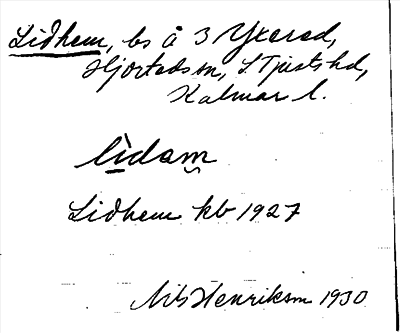 Lidhem, bs å 3 Ykered,
Hjorteds sn, S. Tjusts hd,
Kalmar l.
lìdam̮
Lidhem kb 1927
Nils Henriksm 1930